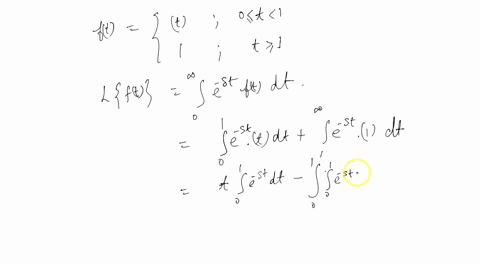 f(t) = { (t) ; 0≤t<1
1 ; t≥1
L{f(t)} = ∫₀^∞ e^{-st} f(t) dt.
= ∫₀¹ e^{-st}.(t) dt + ∫^∞ e^{-st}.(1) dt
= t ∫₀¹ e^{-st} dt - ∫₀¹ ∫₀¹ e^{-st}.